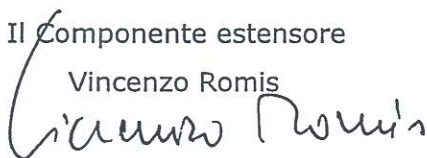 Il Componente estensore
Vincenzo Romis
Vincenzo Romis